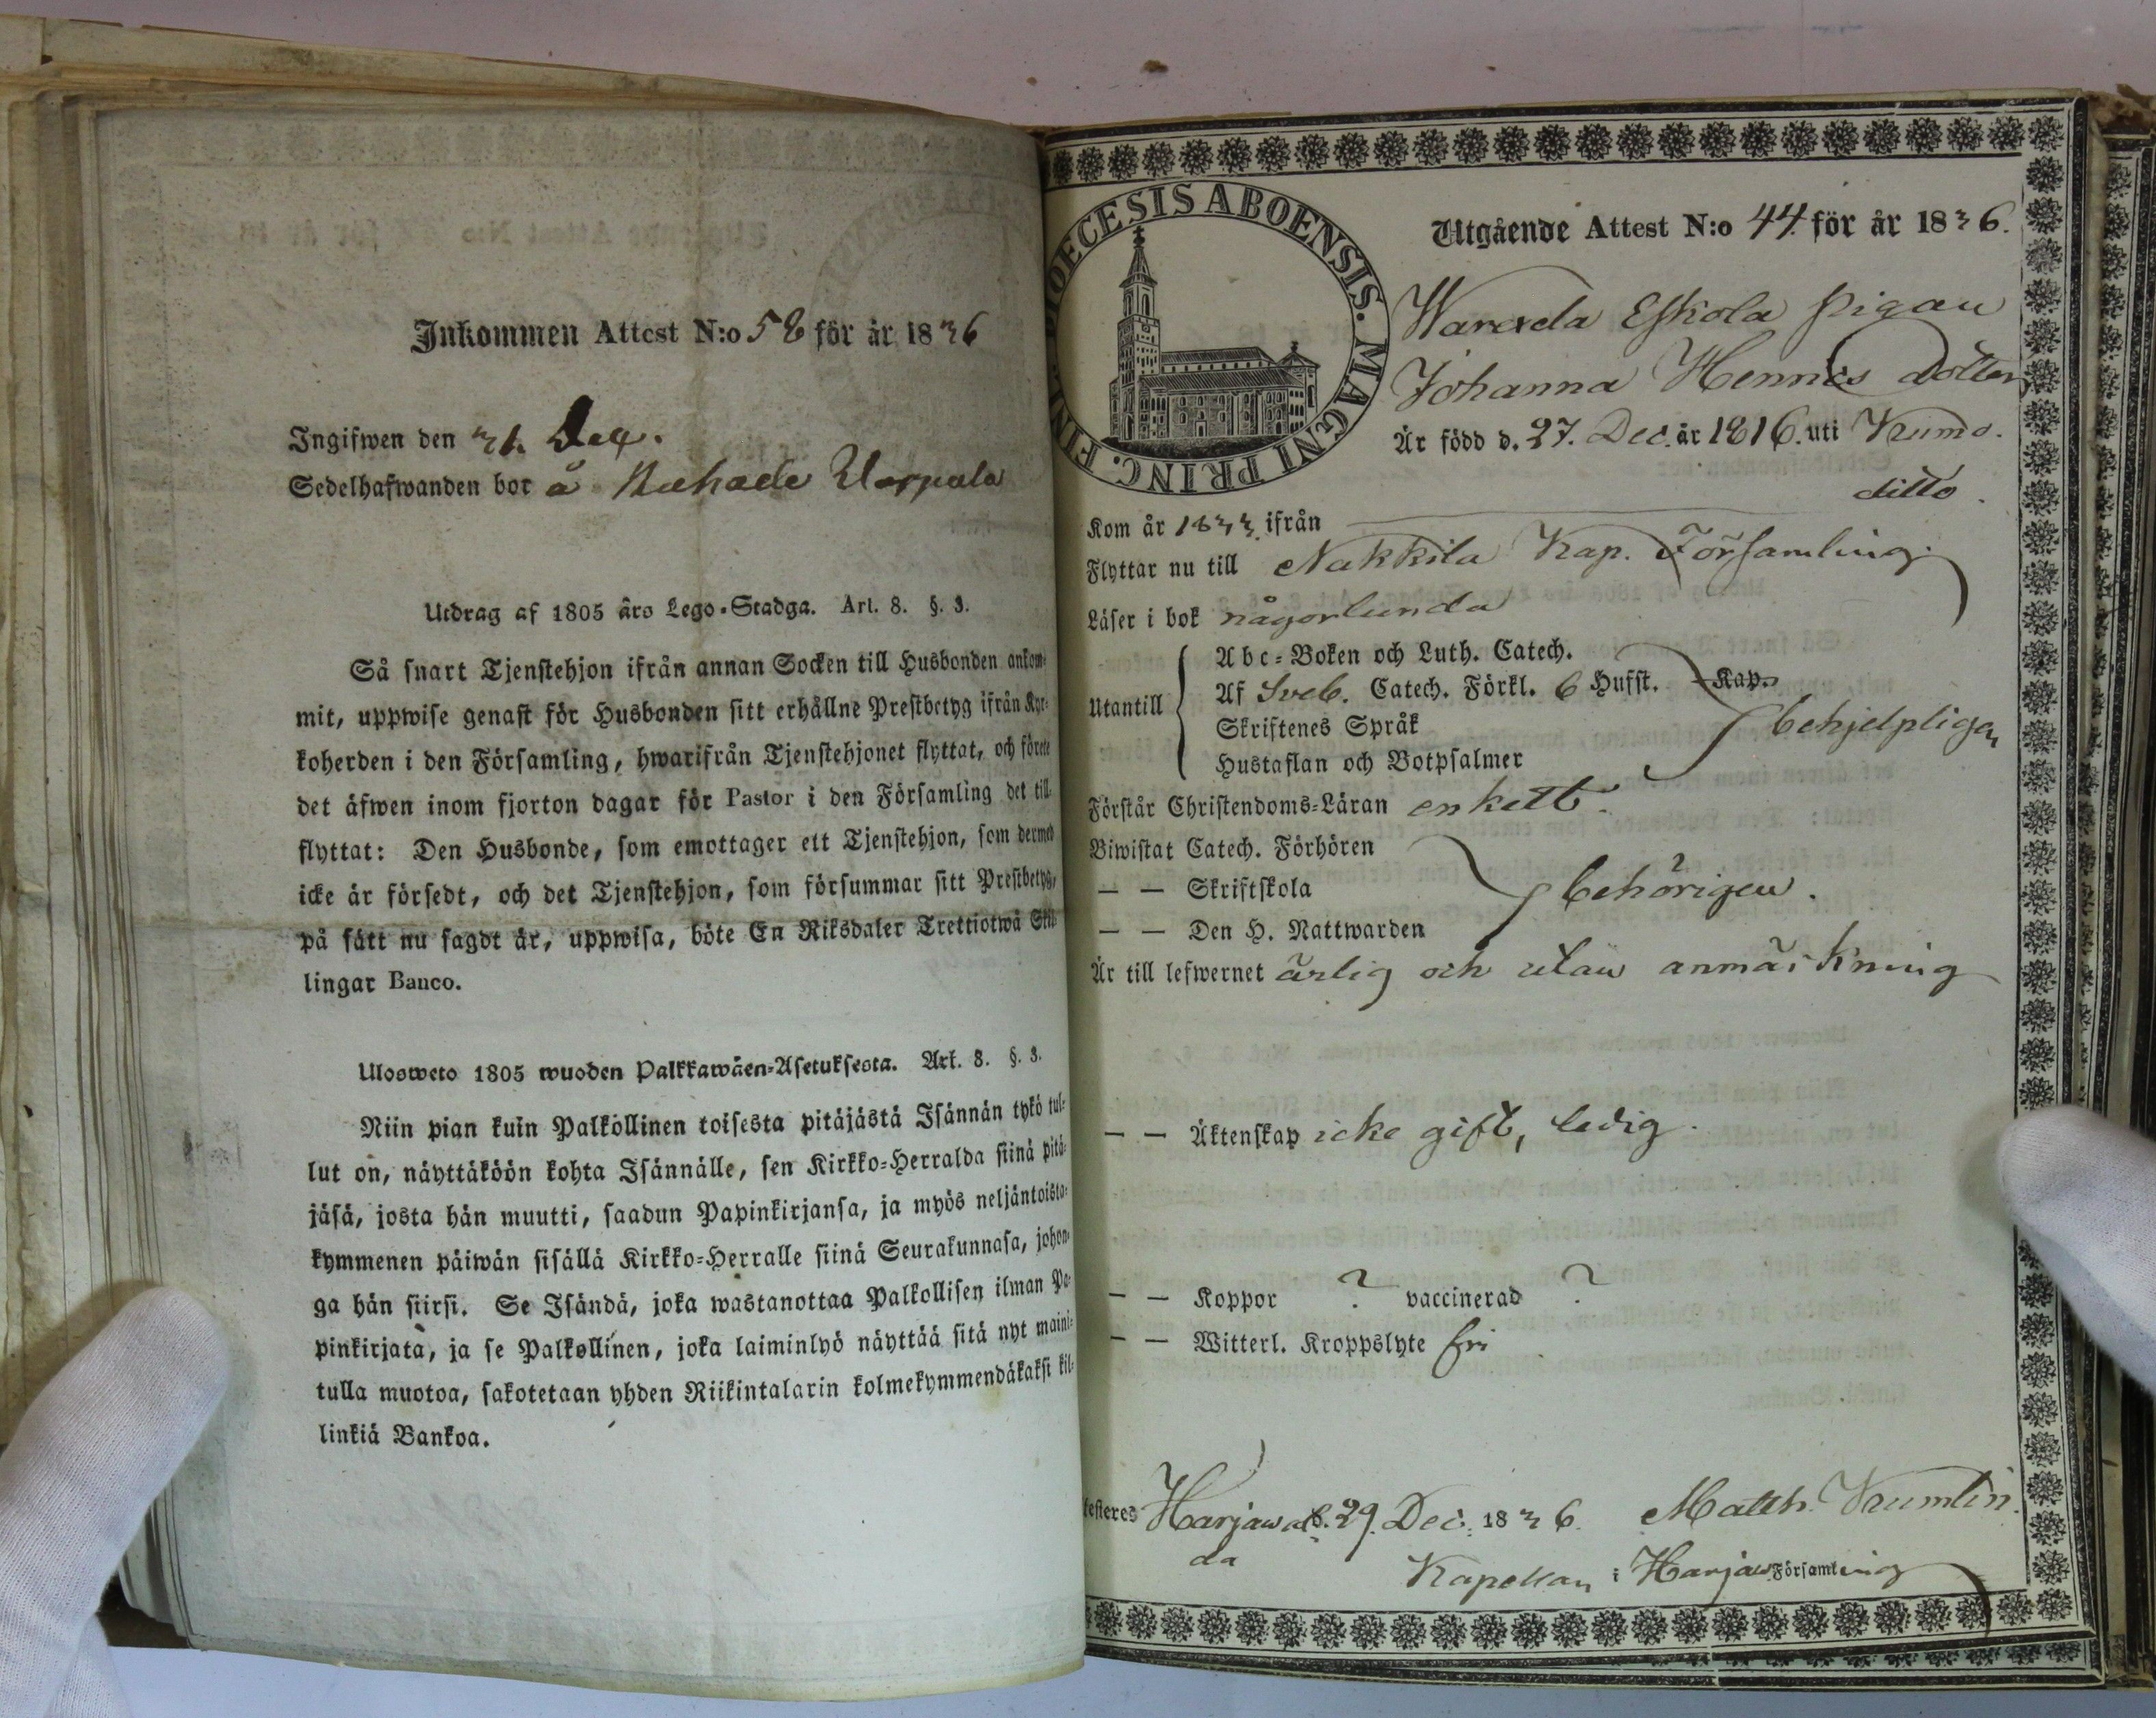 Inkommen Attest N:o 58 för år 1836
Ingifwen den 31. Dec.
Sedelhafwanden bor å
Utdrag af 1805 års Lego-Stadga. Art. 8. §. 3.
Så snart Tjenstehjon ifrån annan Socken till Husbonden ankom-
mit, uppwise genast för Husbonden sitt erhållne Prestbetyg ifrån Kyr-
koherden i den Församling, hwarifrån Tjenstehjonet flyttat, och förete
det äfwen inom fjorton dagar för Pastor i den Församling det till-
flyttat: Den Husbonde, som emottager ett Tjenstehjon, som dermed
icke är försedt, och det Tjenstehjon, som försummar sitt Prestbetyg,
på sätt nu sagdt är, uppwisa, böte En Riksdaler Trettiotwå Skil-
lingar Banco.
Ulosweto 1805 wuoden Palkkawäen-Asetuksesta. Art. 8. §. 3.
Niin pian kuin Palkollinen toisesta pitäjästä Isännän tykö tul-
lut on, näyttäköön kohta Isännälle, sen Kirkko-Herralda siinä pitä-
jäsä, josta hän muutti, saadun Papinkirjansa, ja myös neljäntoista-
kymmenen päiwän sisällä Kirkko-Herralle siinä Seurakunnasa, johon-
ga hän siirsi. Se Isändä, joka wastanottaa Palkollisen ilman Pa-
pinkirjata, ja se Palkollinen, joka laiminlyö näyttää sitä nyt maini-
tulla muotoa, sakotetaan yhden Riikintalarin kolmekymmendäkaksi kil-
linkiä Bankoa.
DIOECESIS ABOENSIS. MAGNI PRINC. FINL.
Utgående Attest N:o 44. för år 1836.
Eskola pigan
Johanna Henrics dotter
Är född d. 27. Dec. år 1816. uti Kumo.
ditto.
Kom år 1833. ifrån
Flyttar nu till Nakkila Kap. Församling.
Läser i bok någorlunda
Utantill
Abc-Boken och Luth. Catech.
Af Sveb. Catech. Förkl. 6 Hufst. Kap.
Skriftenes Språk
Hustaflan och Botpsalmer
behjelpligen
Förstår Christendoms-Läran enkelt.
Biwistat Catech. Förhören
— — Skriftskola
— — Den H. Nattwarden
behörigen.
Är till lefwernet ärlig och utan anmärkning
— — Äktenskap icke gift, ledig.
— — Koppor ? vaccinerad ?
— — Witterl. Kroppslyte fri
testeres Harjawal-
da
d. 29. Dec. 1836. Matth. Krumlin.
Kapellan i Harjaw. Församling